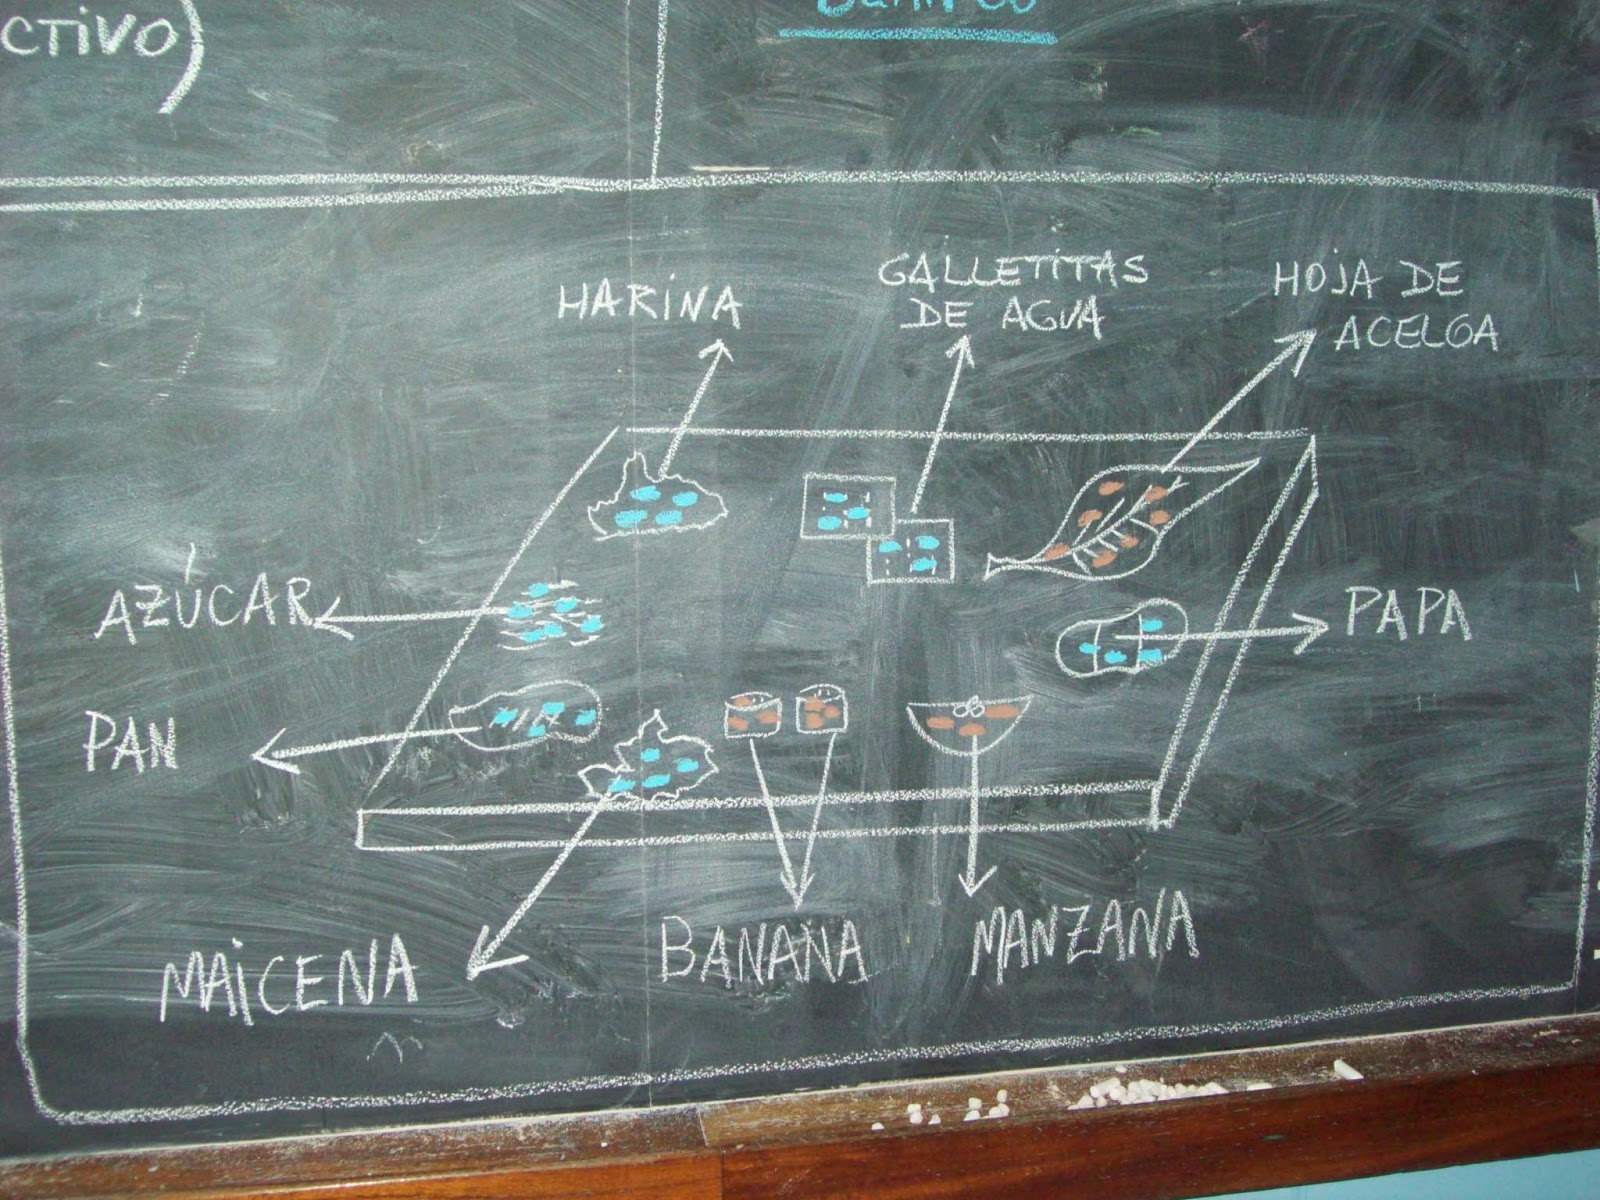 CTIVO)
HARINA
GALLETITAS
DE AGUA
HOJA DE
ACELGA
AZÚCAR
PAPA
PAN
MAICENA
BANANA
MANZANA